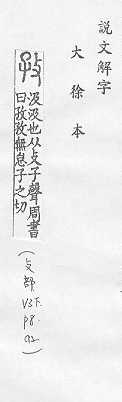 說文解字
大徐本
孜
汲汲也从攴子聲周書
曰孜孜無息子之切
(攴部 V3下. P8.